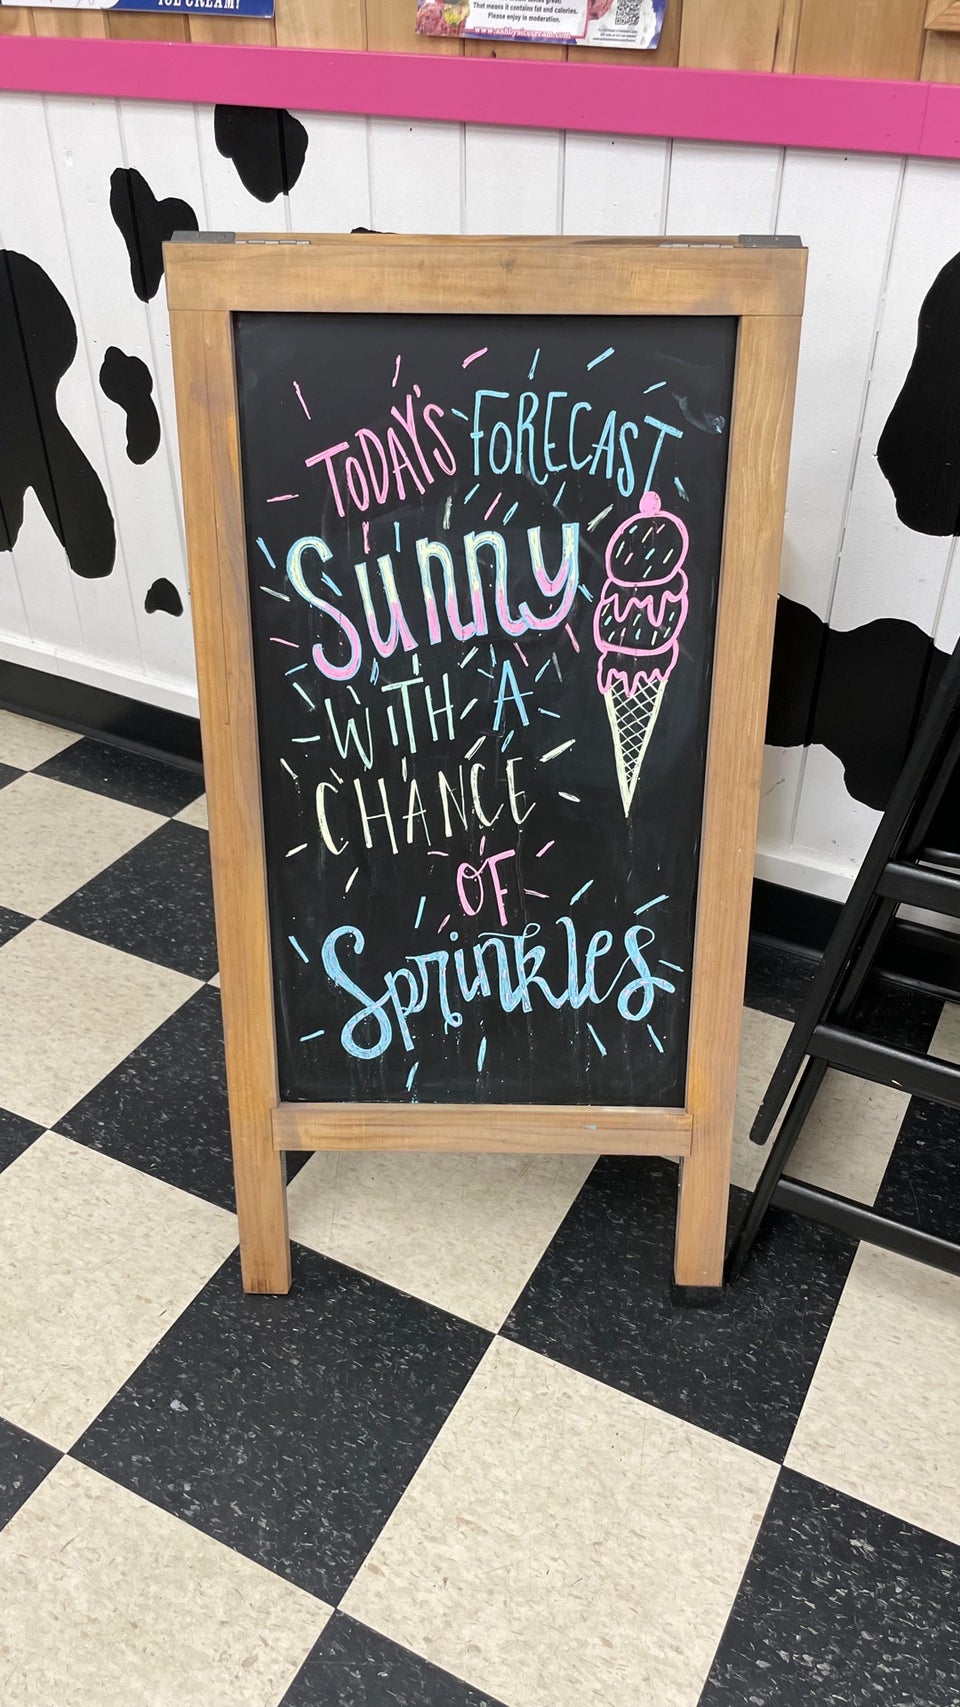 ICE CREAM!
That means it contains fat and calories.
Please enjoy in moderation.
www.ashbysicecream.com
TODAY'S FORECAST
Sunny
WITH A
CHANCE
OF
Sprinkles